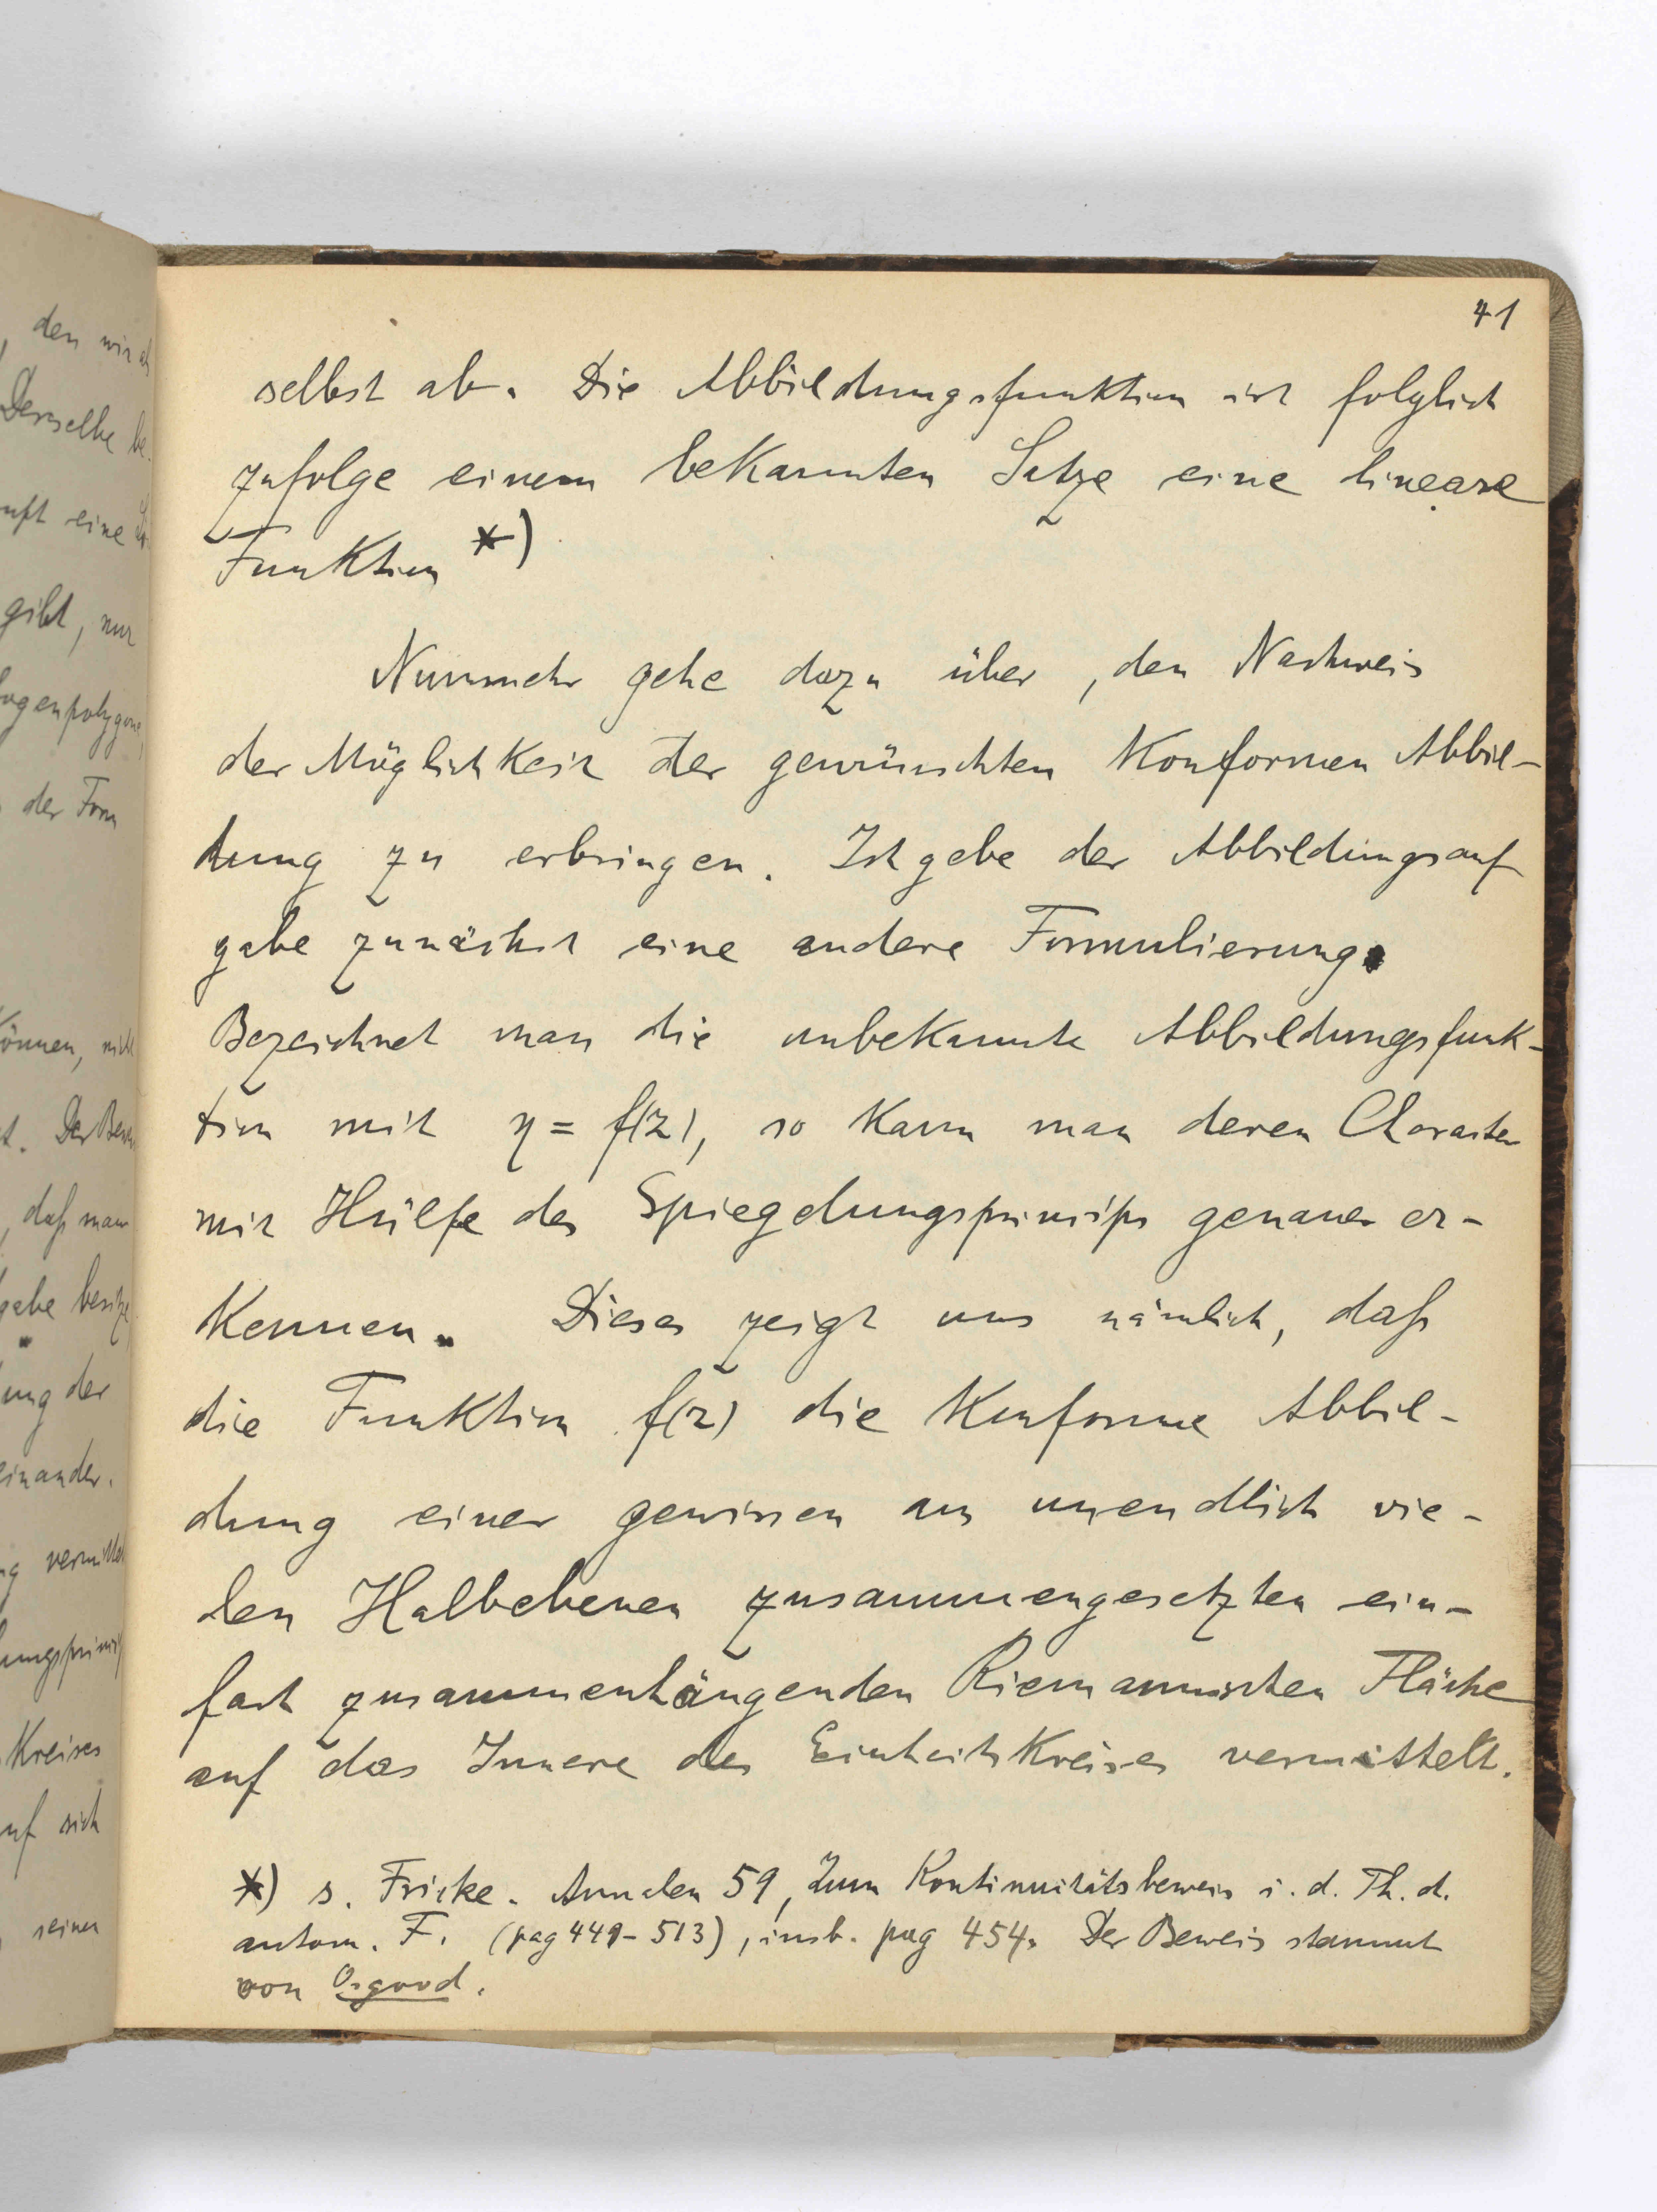 41
selbst ab. Die Abbildungsfunktion ist folglich
zufolge einem bekannten Satze eine lineare
Funktion *)
Nunmehr gehe dazu über, den Nachweis
der Möglichkeit der gewünschten konformen Abbil-
dung zu erbringen. Ich gebe der Abbildungsauf
gabe zunächst eine andere Formulierung.
Bezeichnet man die unbekannte Abbildungsfunk-
tion mit η = f(z), so kann man deren Charakter
mit Hülfe des Spiegelungsprinzips genauer er-
kennen. Dieses zeigt uns nämlich, daß
die Funktion f(z) die konforme Abbil-
dung einer gewissen aus unendlich vie-
len Halbebenen zusammengesetzten ein-
fach zusammenhängenden Riemannschen Fläche
auf das Innere des Einheitskreises vermittelt.
*) s. Fricke. Annalen 59, Zum Kontinuitätsbeweis i. d. Th. d.
autom. F. (pag 449-513), insb. pag 454. Der Beweis stammt
von Osgood.
, den wir als
Derselbe be-
uft eine
gibt, nur
bogenpolygone,
der Form
können, nicht
t. Der Bewei
, daß man
gabe besitze
ung der
einander.
ng vermittel
lungsprinzip
Kreises
uf sich
seiner